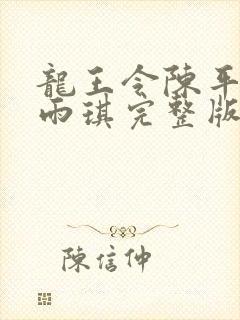 龍王令陳平
雨琪完整版
陳信仲